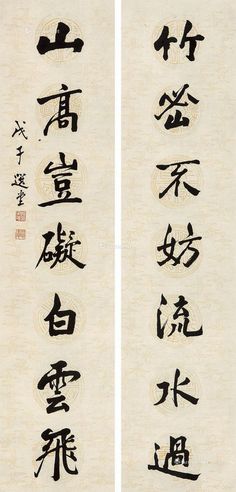 竹密不妨流水過
山高豈礙白雲飛
戊子 選堂